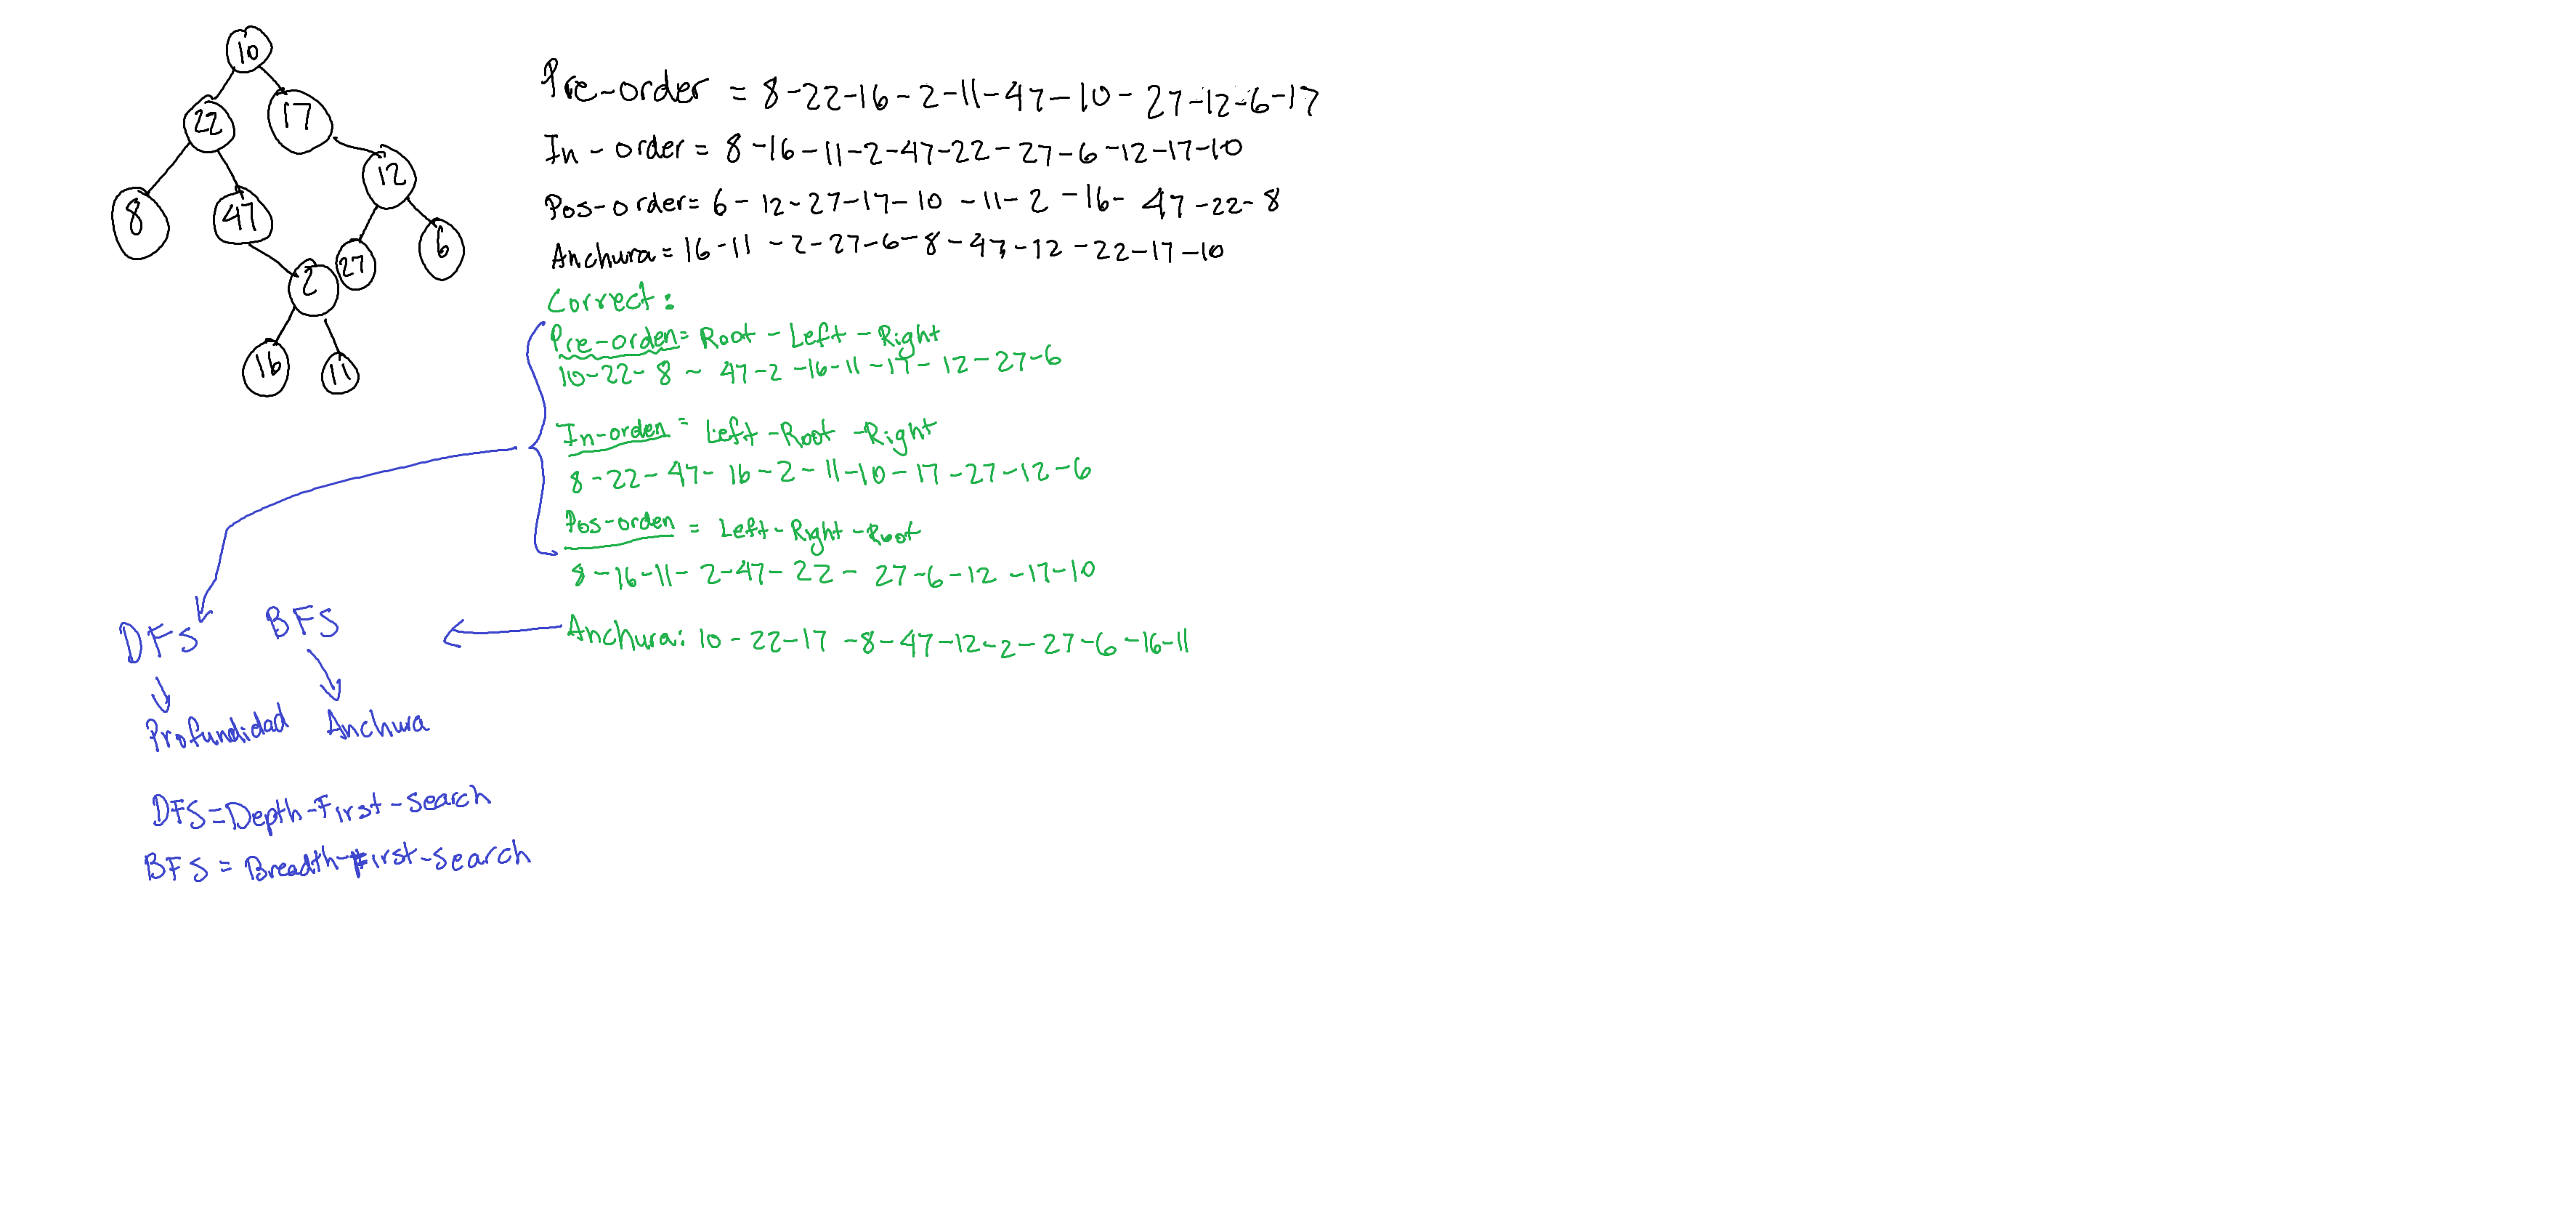 10
22
17
12
8
47
2
27
6
16
11
Pre-order = 8-22-16-2-11-47-10-27-12-6-17
In-order = 8-16-11-2-47-22-27-6-12-17-10
Pos-order= 6-12-27-17-10-11-2-16-47-22-8
Anchura = 16-11-2-27-6-8-47-12-22-17-10
Correct:
Pre-orden= Root-Left-Right
10-22-8-47-2-16-11-17-12-27-6
In-orden = Left-Root-Right
8-22-47-16-2-11-10-17-27-12-6
Pos-orden = Left-Right-Root
8-16-11-2-47-22-27-6-12-17-10
Anchura: 10-22-17-8-47-12-2-27-6-16-11
DFS BFS
Profundidad Anchura
DFS=Depth-First-search
BFS = Breadth-First-search